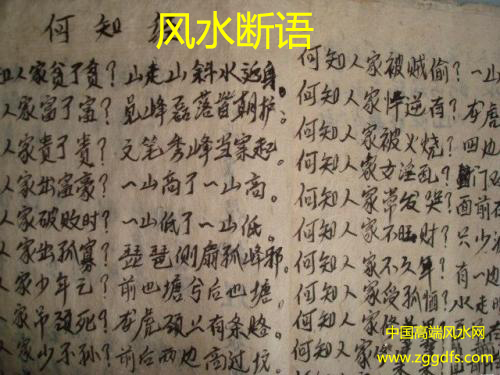 何知
风水断语
知人家贫了贫？山走山斜水返身。
人家富了富？员峰磊落皆朝护。
人家贵了贵？文笔秀峰当案起。
人家出富豪？一山高了一山高。
人家破败时？一山低了一山低。
人家出孤寡？琵琶侧扇孤峰邪。
人家少年亡？前也塘兮后也塘。
家吊颈死？龙虎颈上有条路。
人家少子孙？前后两边高过坟。
何知人家被贼偷？一山
何知人家忤逆有？龙虎
何知人家被火烧？四边
何知人家女淫乱？门对
何知人家常发哭？面前
何知人家不旺财？只少
何知人家不久年？有一边
何知人家受孤恓？水走
何知人家
何知人家
中国高端风水网
www.zggdfs.com